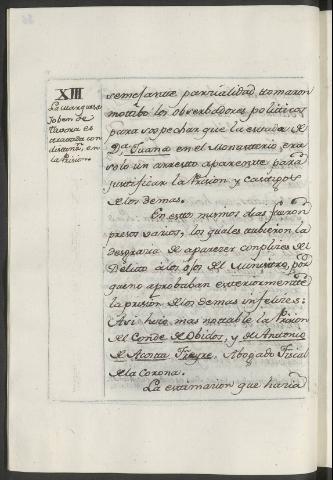 XIII
La marquesa
Joben de
Tavora es
tratada con
distinn, en
la Prision.
semejante parcialidad, tomaron
motibo los obserbadores politicos
para sospechar que la estada de
Da. Juana en el Monasterio era
solo un arresto aparente para
justificar la Prision y castigos
de los demas.
En estos mismos dias fueron
presos varios, los quales tubieron la
desgracia de aparecer complices del
Delito à los ojos del Ministro, por
que no aprobaban exteriormente
la prision de los demas infelices:
Asi hizo mas notable la Prision
del Conde de Obidos, y de Antonio
de Acosta Freyre, Abogado Fiscal
de la Corona.
La estimacion que hacia